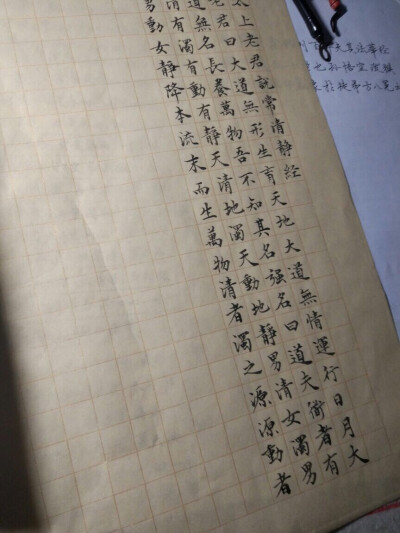 太上老君說常清静经
老君曰大道無形生育天地大道無情運行日月大
道無名長養萬物吾不知其名强名曰道夫衟者有
清有濁有動有静天清地濁天動地静男清女濁男
男動女静降本流末而生萬物清者濁之源源動者